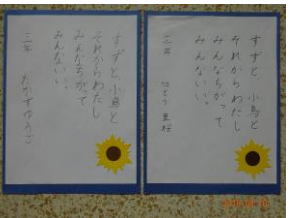 すずと、小鳥と
それからわたし
みんなちがって
みんないい。
二年
すずと、小鳥と
それからわたし
みんなちがって
みんないい。
三年